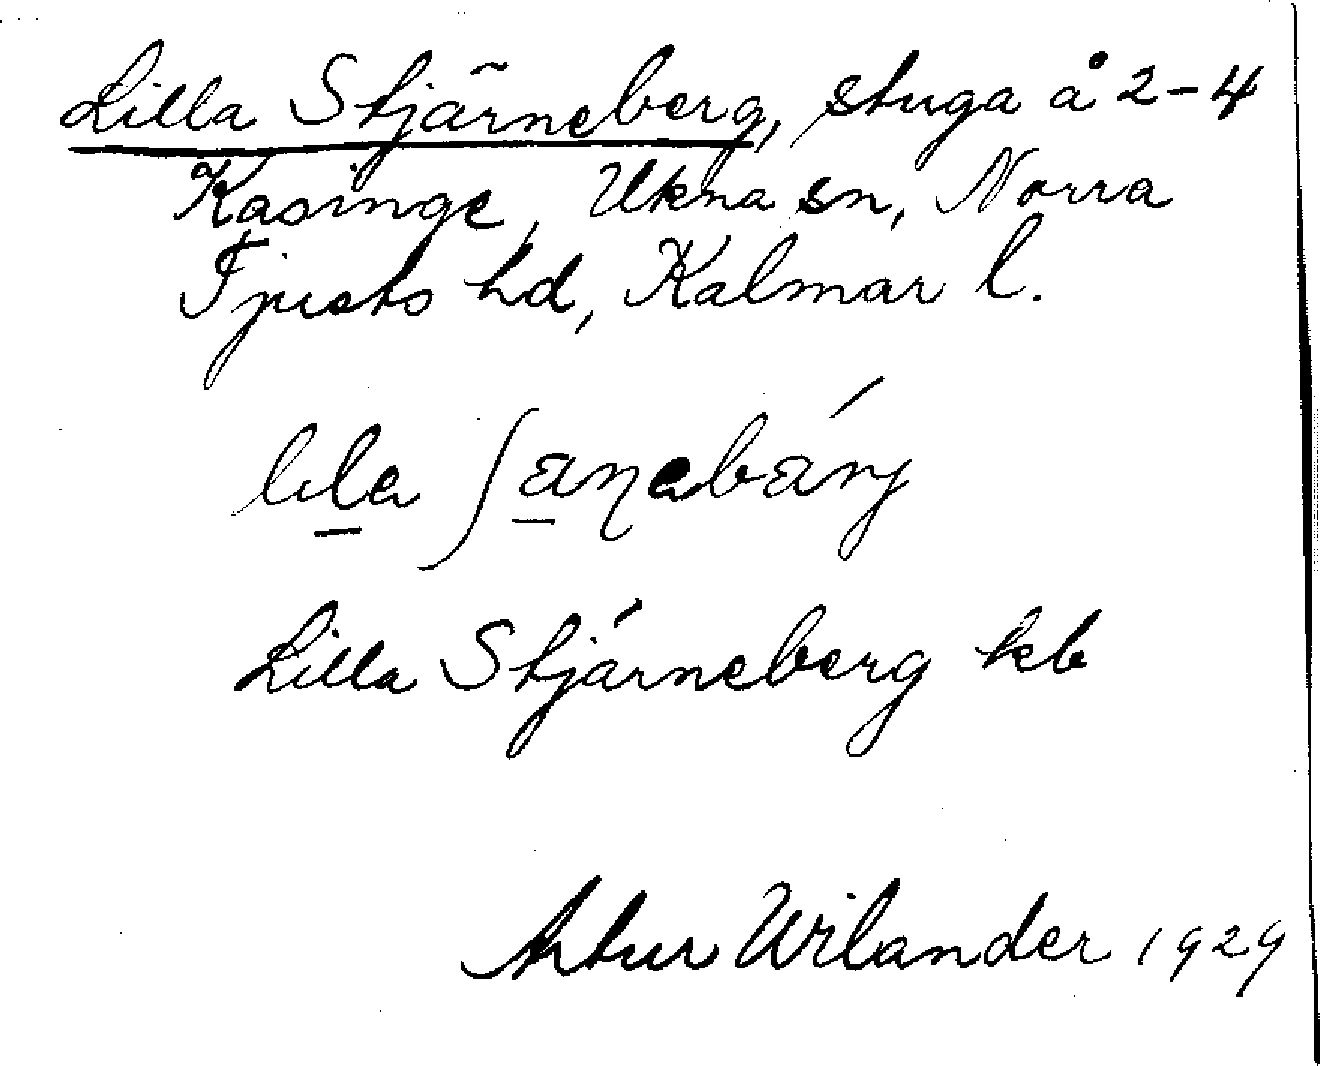 Lilla Stjärneberg, stuga å 2-4
Kasinge, Ukna sn, Norra
Tjusts hd, Kalmar l.
lila ʃäŋabärj
Lilla Stjärneberg kb
Artur Wilander 1929